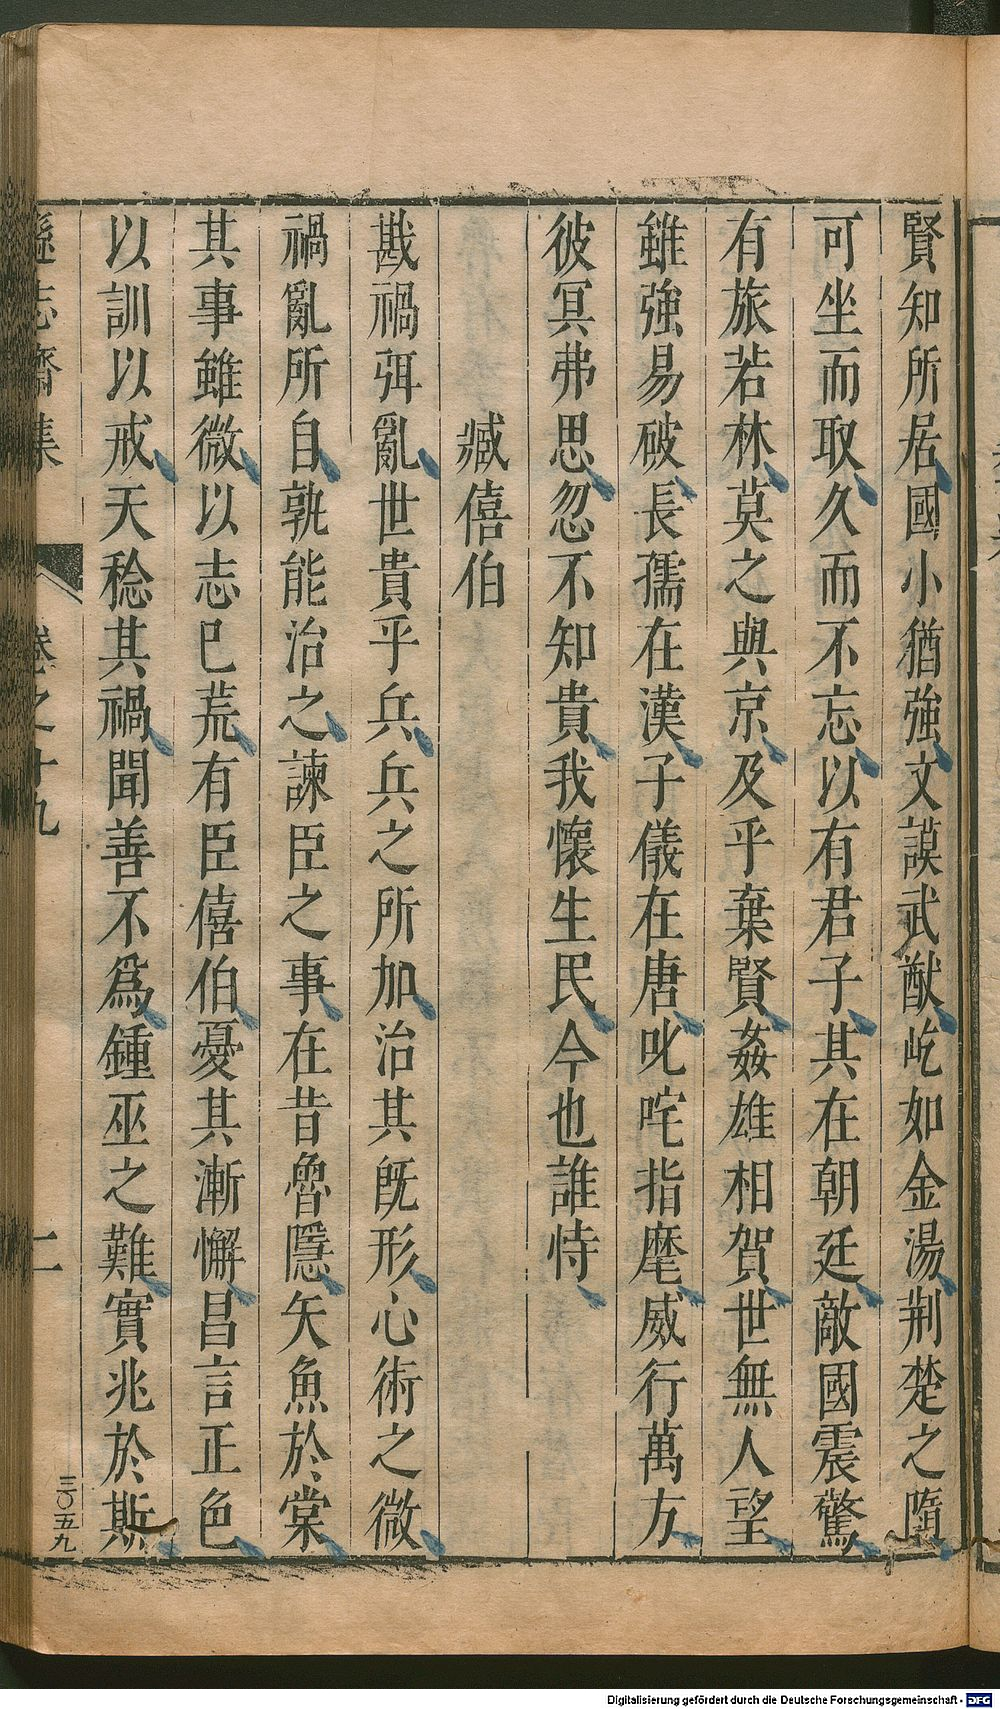 賢知所居國小猶強文謨武猷屹如金湯荆楚之隋
可坐而取久而不忘以有君子其在朝廷敵國震驚
有旅若林莫之與京及乎棄賢姦雄相賀世無人望
雖強易破長孺在漢子儀在唐叱咤指麾威行萬方
彼冥弗思忽不知貴我懷生民今也誰恃
臧僖伯
戡禍弭亂世貴乎兵兵之所加治其旣形心術之微
禍亂所自孰能治之諫臣之事在昔魯隱矢魚於棠
其事雖微以志已荒有臣僖伯憂其漸懈昌言正色
以訓以戒天稔其禍聞善不爲鍾巫之難實兆於斯
遜志齋集
卷之十九
三〇五九
Digitalisierung gefördert durch die Deutsche Forschungsgemeinschaft - DFG